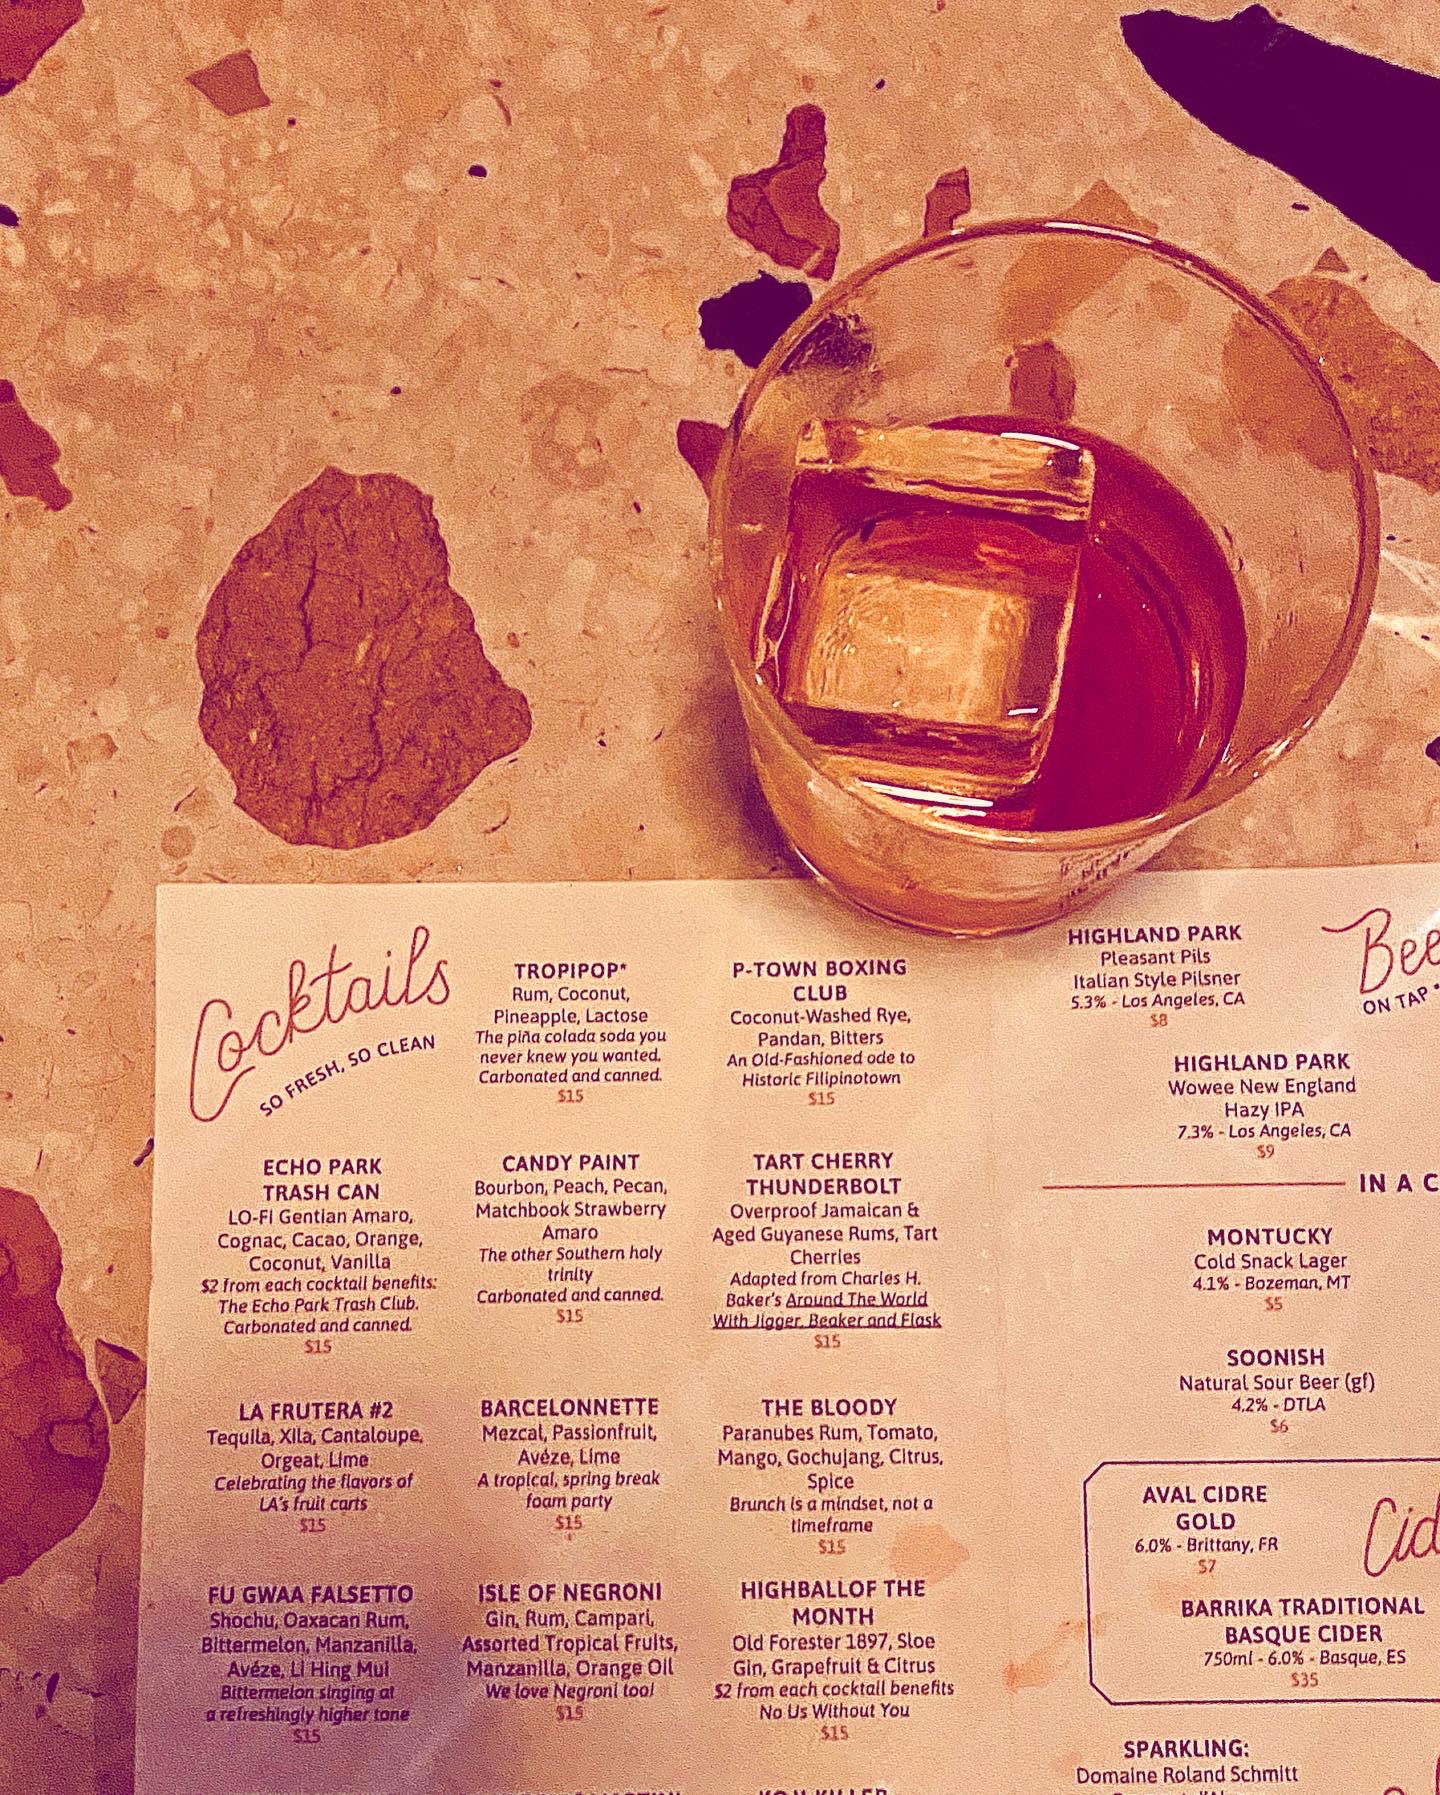 Cocktails
SO FRESH, SO CLEAN
ECHO PARK
TRASH CAN
LO-FI Gentian Amaro,
Cognac, Cacao, Orange,
Coconut, Vanilla
$2 from each cocktail benefits:
The Echo Park Trash Club.
Carbonated and canned.
$15
LA FRUTERA #2
Tequila, Xila, Cantaloupe,
Orgeat, Lime
Celebrating the flavors of
LA's fruit carts
$15
FU GWAA FALSETTO
Shochu, Oaxacan Rum,
Bittermelon, Manzanilla,
Avéze, Li Hing Mui
Bittermelon singing at
a refreshingly higher tone
$15
TROPIPOP*
Rum, Coconut,
Pineapple, Lactose
The piña colada soda you
never knew you wanted.
Carbonated and canned.
$15
CANDY PAINT
Bourbon, Peach, Pecan,
Matchbook Strawberry
Amaro
The other Southern holy
trinity
Carbonated and canned.
$15
BARCELONNETTE
Mezcal, Passionfruit,
Avéze, Lime
A tropical, spring break
foam party
$15
ISLE OF NEGRONI
Gin, Rum, Campari,
Assorted Tropical Fruits,
Manzanilla, Orange Oil
We love Negroni too!
$15
P-TOWN BOXING
CLUB
Coconut-Washed Rye,
Pandan, Bitters
An Old-Fashioned ode to
Historic Filipinotown
$15
TART CHERRY
THUNDERBOLT
Overproof Jamaican &
Aged Guyanese Rums, Tart
Cherries
Adapted from Charles H.
Baker's Around The World
With Jigger, Beaker and Flask
$15
THE BLOODY
Paranubes Rum, Tomato,
Mango, Gochujang, Citrus,
Spice
Brunch is a mindset, not a
timeframe
$15
HIGHBALLOF THE
MONTH
Old Forester 1897, Sloe
Gin, Grapefruit & Citrus
$2 from each cocktail benefits
No Us Without You
$15
HIGHLAND PARK
Pleasant Pils
Italian Style Pilsner
5.3% - Los Angeles, CA
$8
Bee
ON TAP •
HIGHLAND PARK
Wowee New England
Hazy IPA
7.3% - Los Angeles, CA
$9
IN A C
MONTUCKY
Cold Snack Lager
4.1% - Bozeman, MT
$5
SOONISH
Natural Sour Beer (gf)
4.2% - DTLA
$6
AVAL CIDRE
GOLD
6.0% - Brittany, FR
$7
Cid
BARRIKA TRADITIONAL
BASQUE CIDER
750ml - 6.0% - Basque, ES
$35
SPARKLING:
Domaine Roland Schmitt